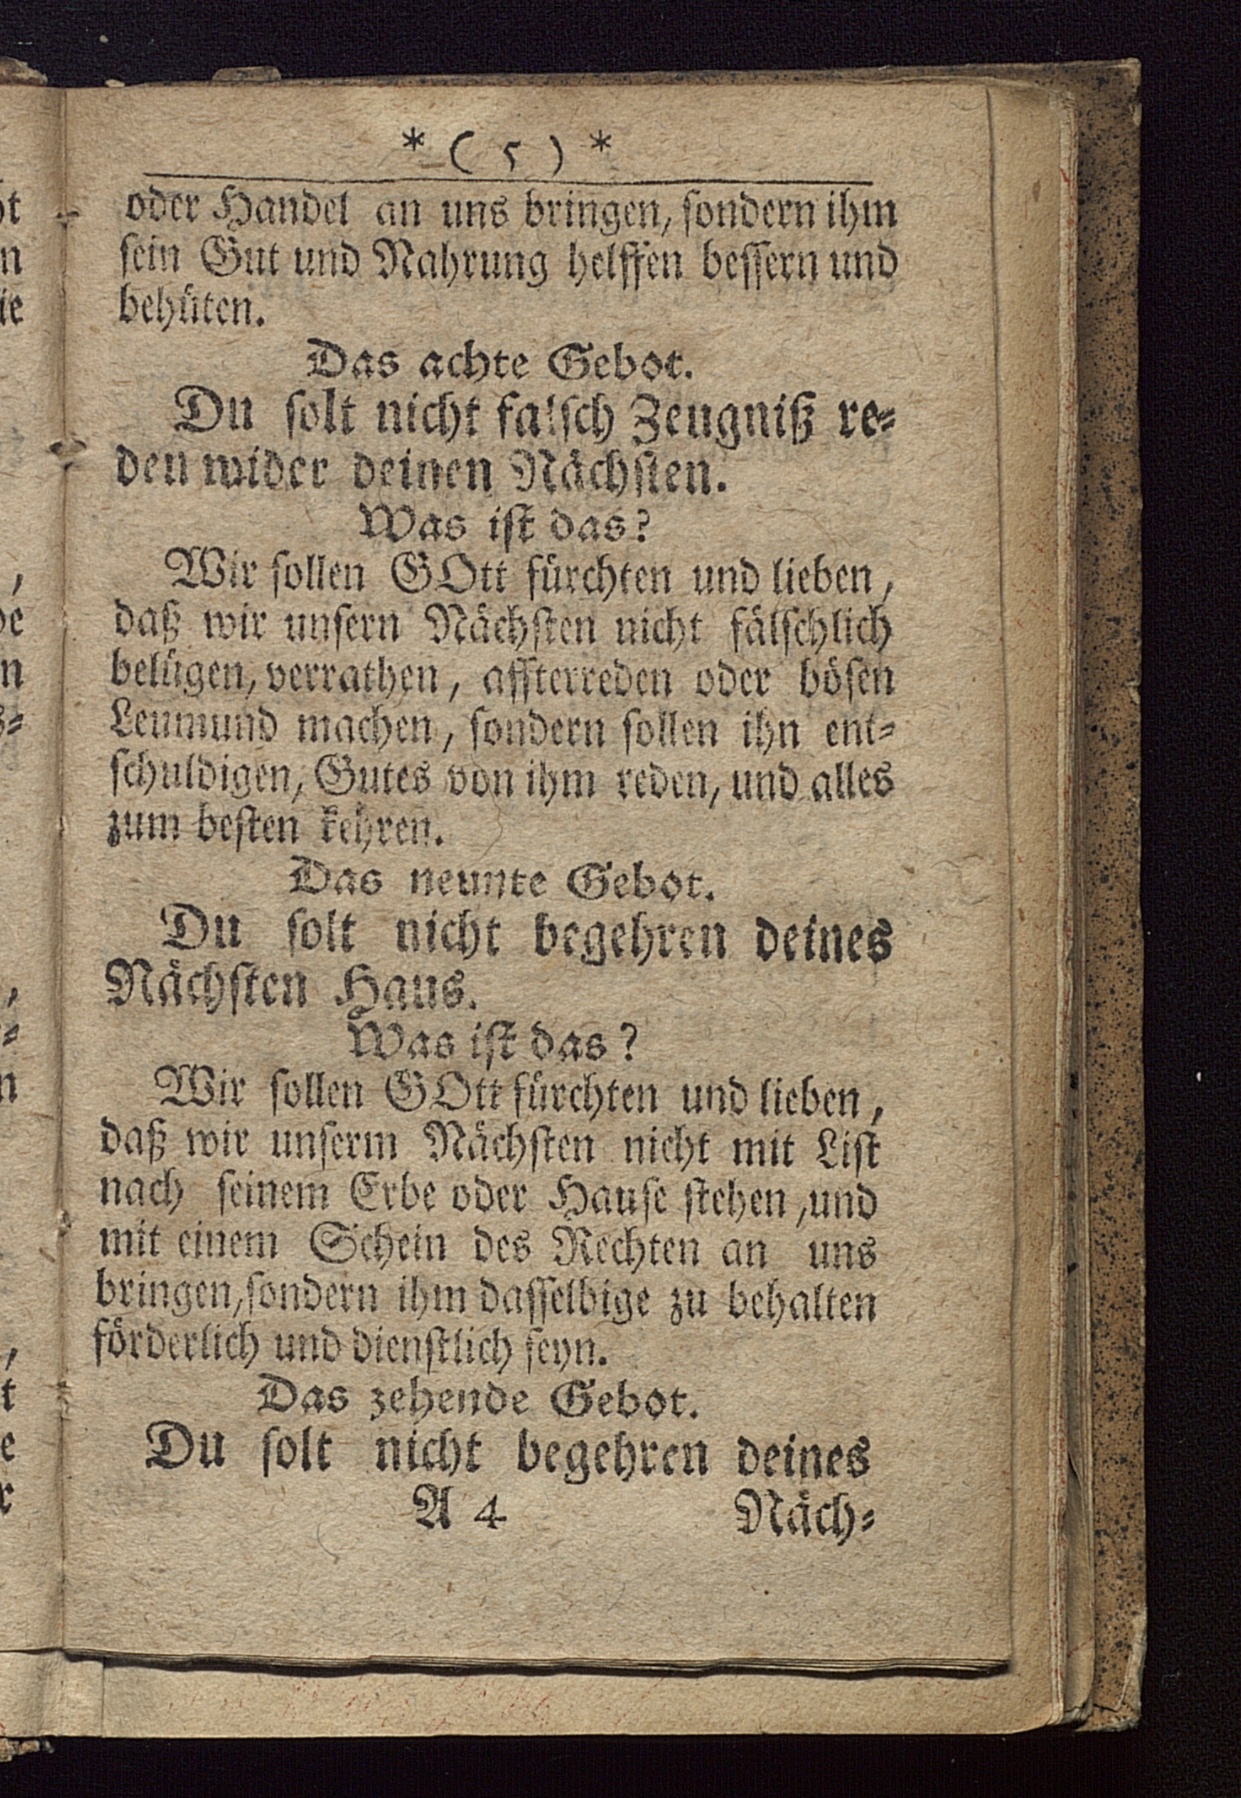 * ( 5 ) *
oder Handel an uns bringen, sondern ihm
sein Gut und Nahrung helffen bessern und
behüten.
Das achte Gebot.
Du solt nicht falsch Zeugniß re-
den wider deinen Nächsten.
Was ist das?
Wir sollen GOtt fürchten und lieben,
daß wir unsern Nächsten nicht fälschlich
belügen, verrathen, affterreden oder bösen
Leumund machen, sondern sollen ihn ent-
schuldigen, Gutes von ihm reden, und alles
zum besten kehren.
Das neunte Gebot.
Du solt nicht begehren deines
Nächsten Haus.
Was ist das?
Wir sollen GOtt fürchten und lieben,
daß wir unserm Nächsten nicht mit List
nach seinem Erbe oder Hause stehen, und
mit einem Schein des Rechten an uns
bringen, sondern ihm dasselbige zu behalten
förderlich und dienstlich seyn.
Das zehende Gebot.
Du solt nicht begehren deines
A 4 Näch-